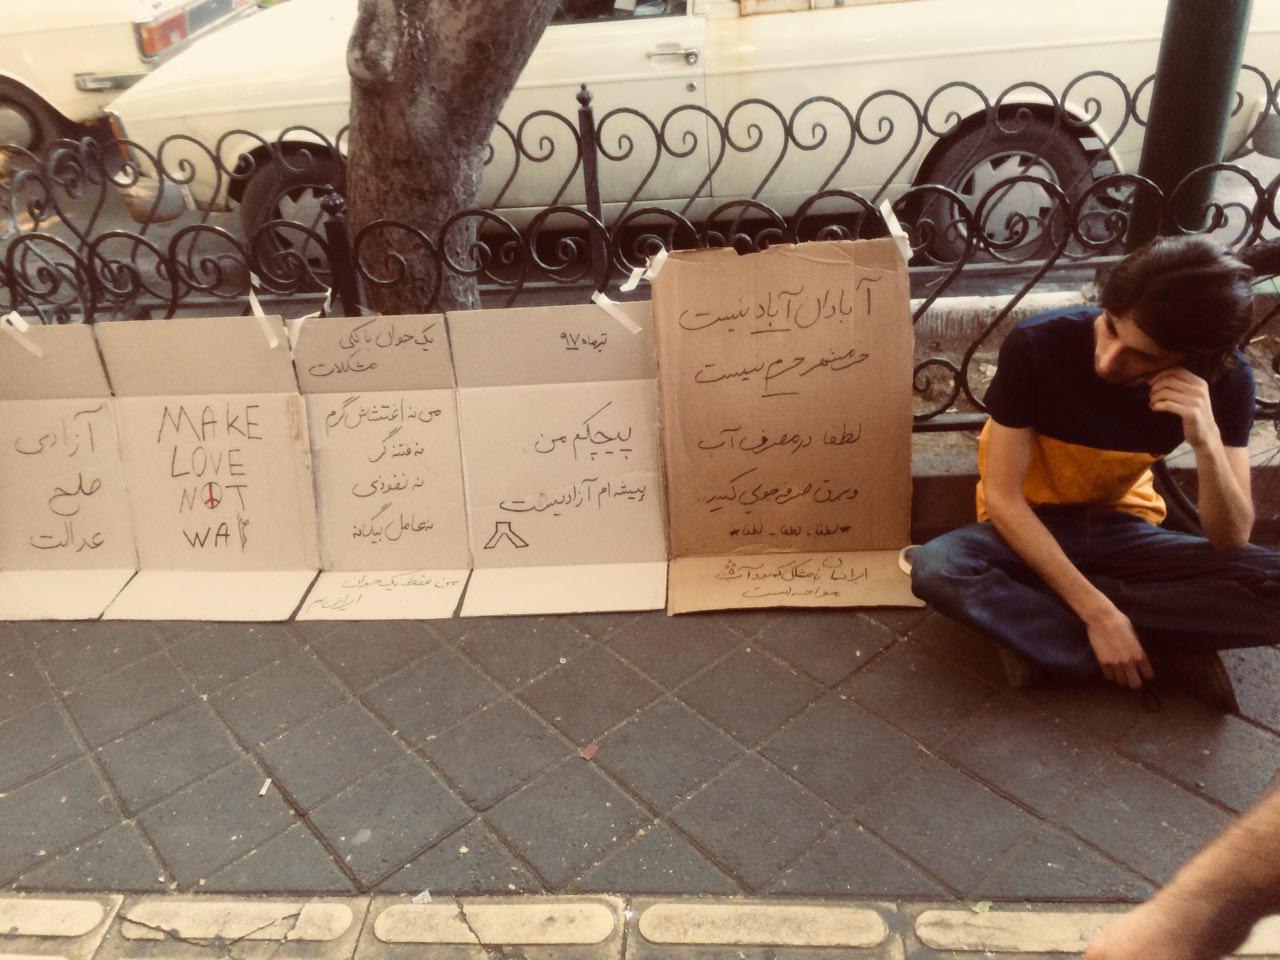 آبادان آباد نیست
خرمشهر خرم نیست
لطفا در مصرف آب
و برق صرفه‌جویی کنید...
*لطفا - لطفا - لطفا*
ایرانمان با مشکل کمبود آب
مواجه است
تیرماه ۹۷
پیچکم من
ریشه‌ام آزادیست
یک جوان با کلی
مشکلات
من نه اغتشاش‌گرم
نه فتنه‌گر
نه نفوذی
نه عامل بیگانه
من فقط یک جوان
ایرانی‌ام
MAKE
LOVE
NOT
WAR
آزادی
صلح
عدالت